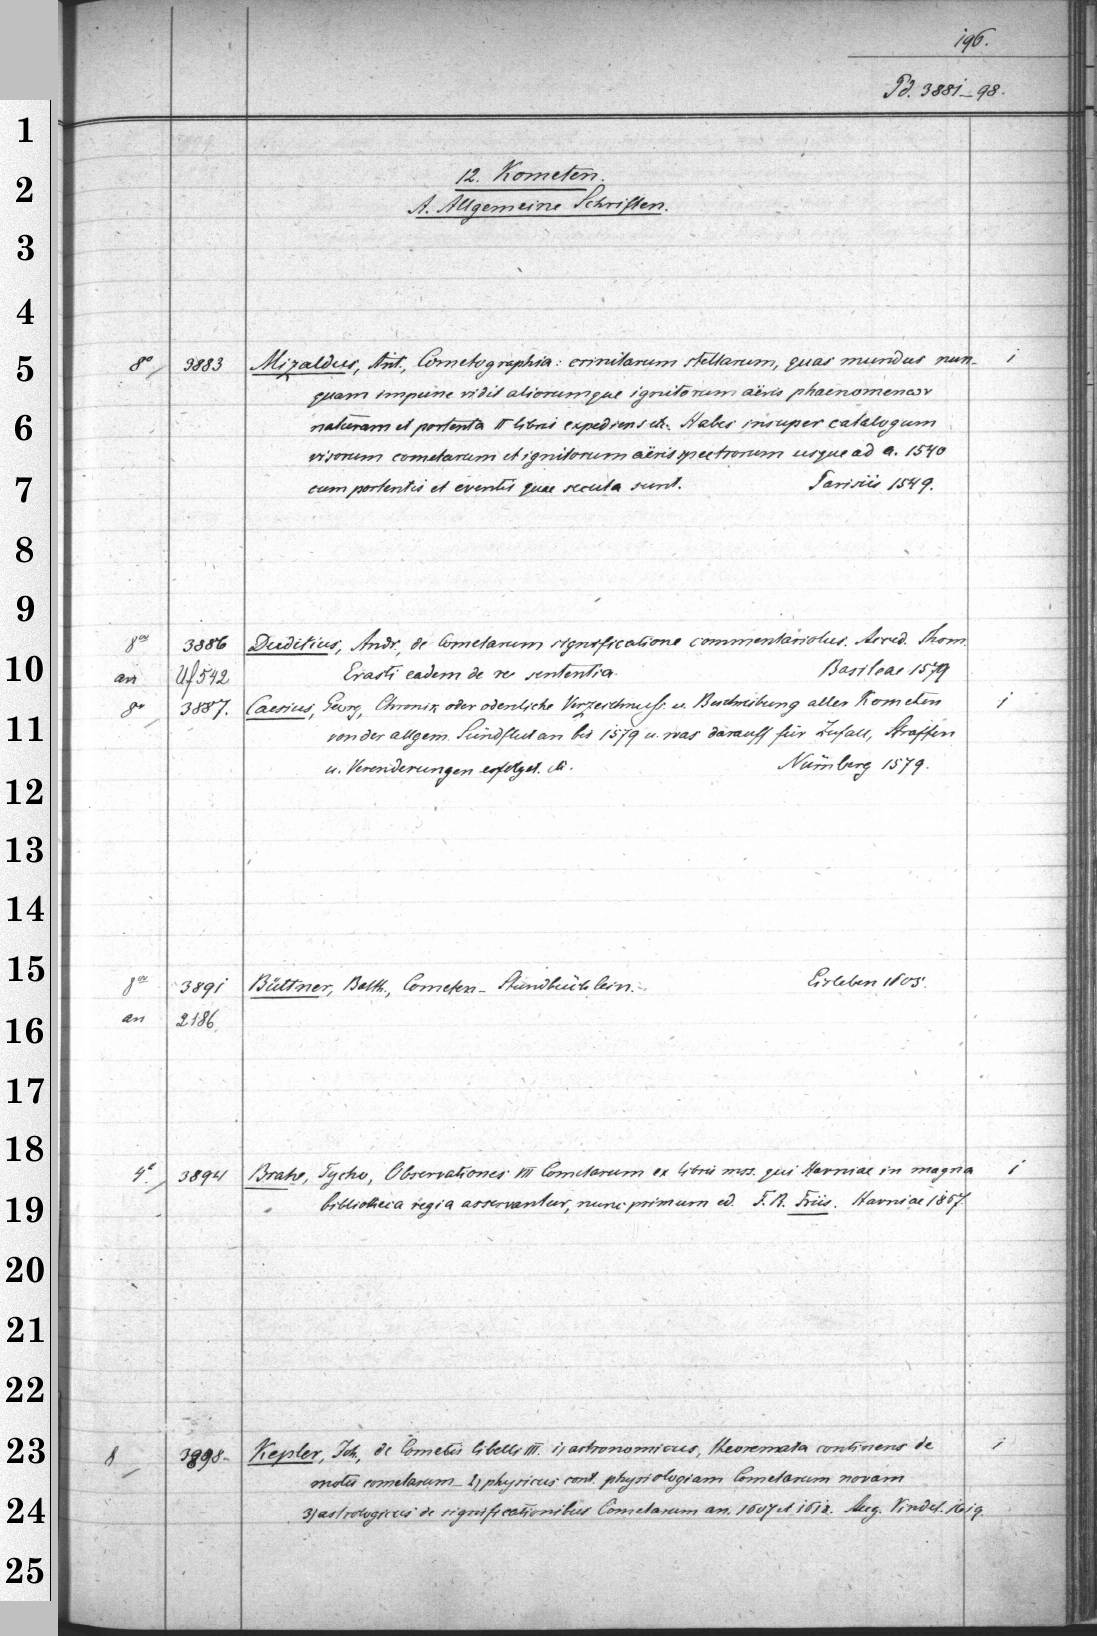 196.
Pd. 3881-98.
1
12. Kometen.
2
A. Allgemeine Schriften.
3
4
5
8° 3883 Mizaldus, Ant., Cometographia: crinitarum stellarum, quas mundus nun- 1
quam impune vidit aliorumque ignitorum aëris phaenomenωv
6
naturam et portenta II libris expediens etc. Habes insuper catalogum
visorum cometarum et ignitorum aëris spectrorum usque ad a. 1540
7
cum portentis et eventis quae secuta sunt. Parisiis 1549.
8
9
8vo 3886 Duditius, Andr., de Cometarum significatione commentariolus. Acced. Thom.
10
an Uf 542 Erasti eadem de re sententia. Basileae 1579
8vo 3887. Caesius, Georg, Chronik oder odenliche Verzeichnuss. u. Beschreibung aller Kometen 1
11
von der allgem. Sündflut an bis 1579 u. was darauff für Zufall, Straffen
u. Verenderungen erfolget. etc. Nürnberg 1579.
12
13
14
15
8vo 3891 Büttner, Balth., Cometen-Stundbüchlein. Eisleben 1605.
16
an 2186.
17
18
4° 3894 Brahe, Tycho, Observationes VII Cometarum ex libris mss. qui Havniae in magna 1
19
bibliotheca regia asservantur, nunc primum ed. F. R. Friis. Havniae 1867.
20
21
22
23
8 3898- Kepler, Joh., de Cometis libelli III. 1) astronomicus, theoremata continens de 1
motu cometarum - 2) physicus cont. physiologiam Cometarum novam
24
3) astrologicus de significationibus Cometarum an. 1607 et 1618. Aug. Vindel. 1619.
25